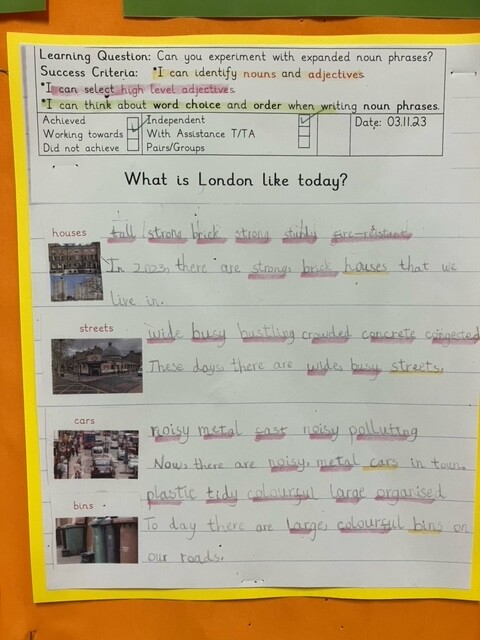 Learning Question: Can you experiment with expanded noun phrases?
Success Criteria: *I can identify nouns and adjectives.
*I can select high level adjectives.
*I can think about word choice and order when writing noun phrases.
Achieved Independent Date: 03.11.23
Working towards With Assistance T/TA
Did not achieve Pairs/Groups
What is London like today?
houses tall strong brick strong sturdy fire-resistant
In 2023, there are strong, brick houses that we
live in.
streets wide busy bustling crowded concrete congested
These days, there are wide, busy streets.
cars noisy metal fast noisy polluting
Now, there are noisy, metal cars in town.
plastic tidy colourful large organised
bins To day there are large, colourful bins on
our roads.